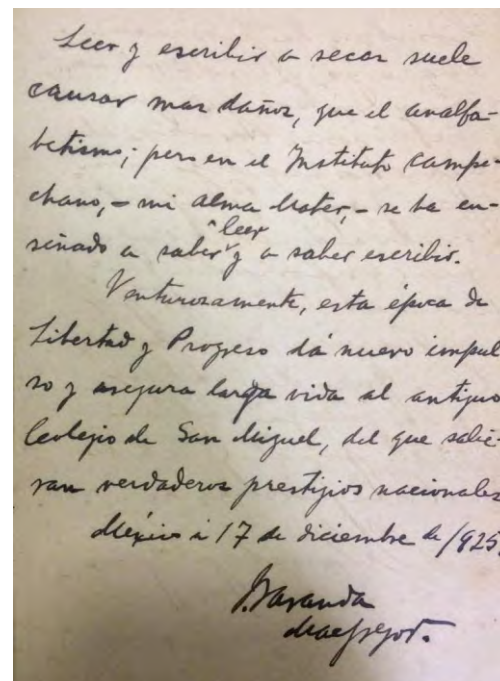 Leer y escribir a secas suele
causar mas daños, que el analfa-
betismo; pero en el Instituto Campe-
chano, - mi alma Mater, - se ha en-
señado a saber leer y a saber escribir.
Venturosamente, esta época de
Libertad y Progreso dá nuevo impul
so y asegura larga vida al antiguo
Colegio de San Miguel, del que salie-
ran verdaderos prestijios nacionales
México a 17 de diciembre de 1925.
J. Baranda
MacGregor.